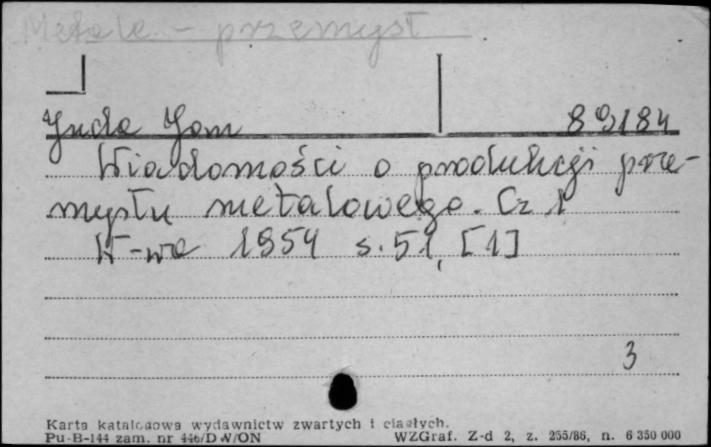 Metale - przemysł
Juda Jom 89184
Wiadomości o produkcji prze-
mysłu metalowego. Cz 1
W-wa 1954 s. 51, [1]
3
Karta katalogowa wydawnictw zwartych i ciągłych.
Pu-B-144 zam. nr 446/DW/ON WZGraf. Z-d 2, z. 255/86, n. 6 350 000